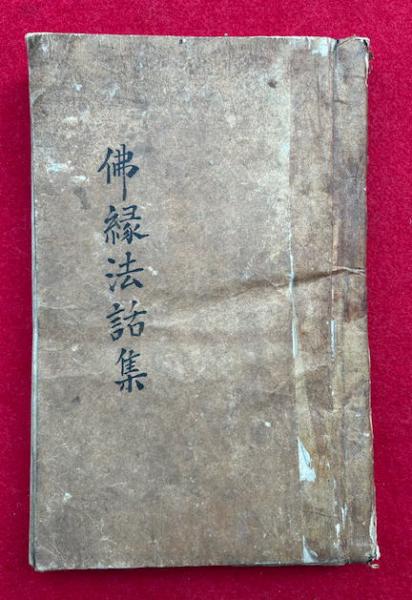 佛緣法話集